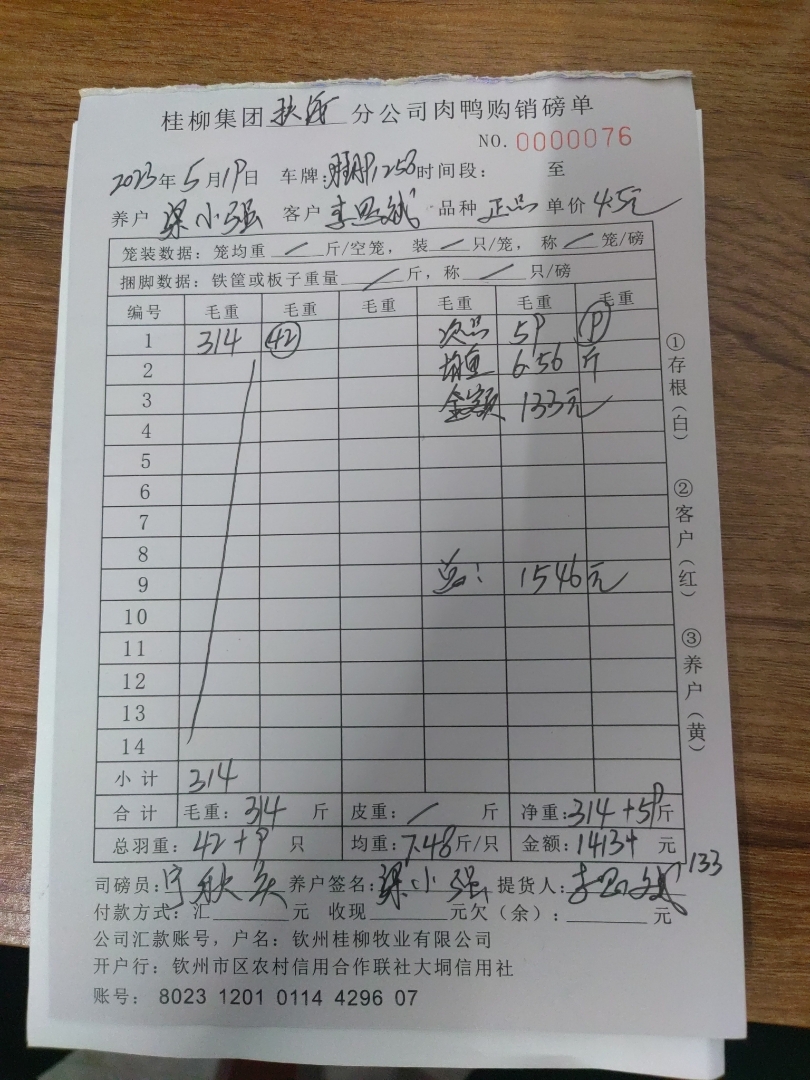 桂柳集团 分公司肉鸭购销磅单
NO. 0000076
2023年5月19日 车牌: 时间段: 至
养户 梁小强 客户 李 斌 品种 正品 单价 4.5元
笼装数据: 笼均重 / 斤/空笼, 装 / 只/笼, 称 / 笼/磅
捆脚数据: 铁筐或板子重量 / 斤, 称 / 只/磅
编号 毛重 毛重 毛重 毛重 毛重 毛重
1 314 42 次品 59 9
2 均重 6.56 斤
3 金额 133元
4
5
6
7
8
9 总: 1546元
10
11
12
13
14
小计 314
合计 毛重: 314 斤 皮重: / 斤 净重: 314+59斤
总羽重: 42+9 只 均重: 7.48斤/只 金额: 1413+ 元
133
司磅员: 养户签名: 梁小强 提货人: 李 斌
付款方式: 汇 元 收现 元欠(余): 元
公司汇款账号, 户名: 钦州桂柳牧业有限公司
开户行: 钦州市区农村信用合作联社大垌信用社
账号: 8023 1201 0114 4296 07
①存根(白) ②客户(红) ③养户(黄)